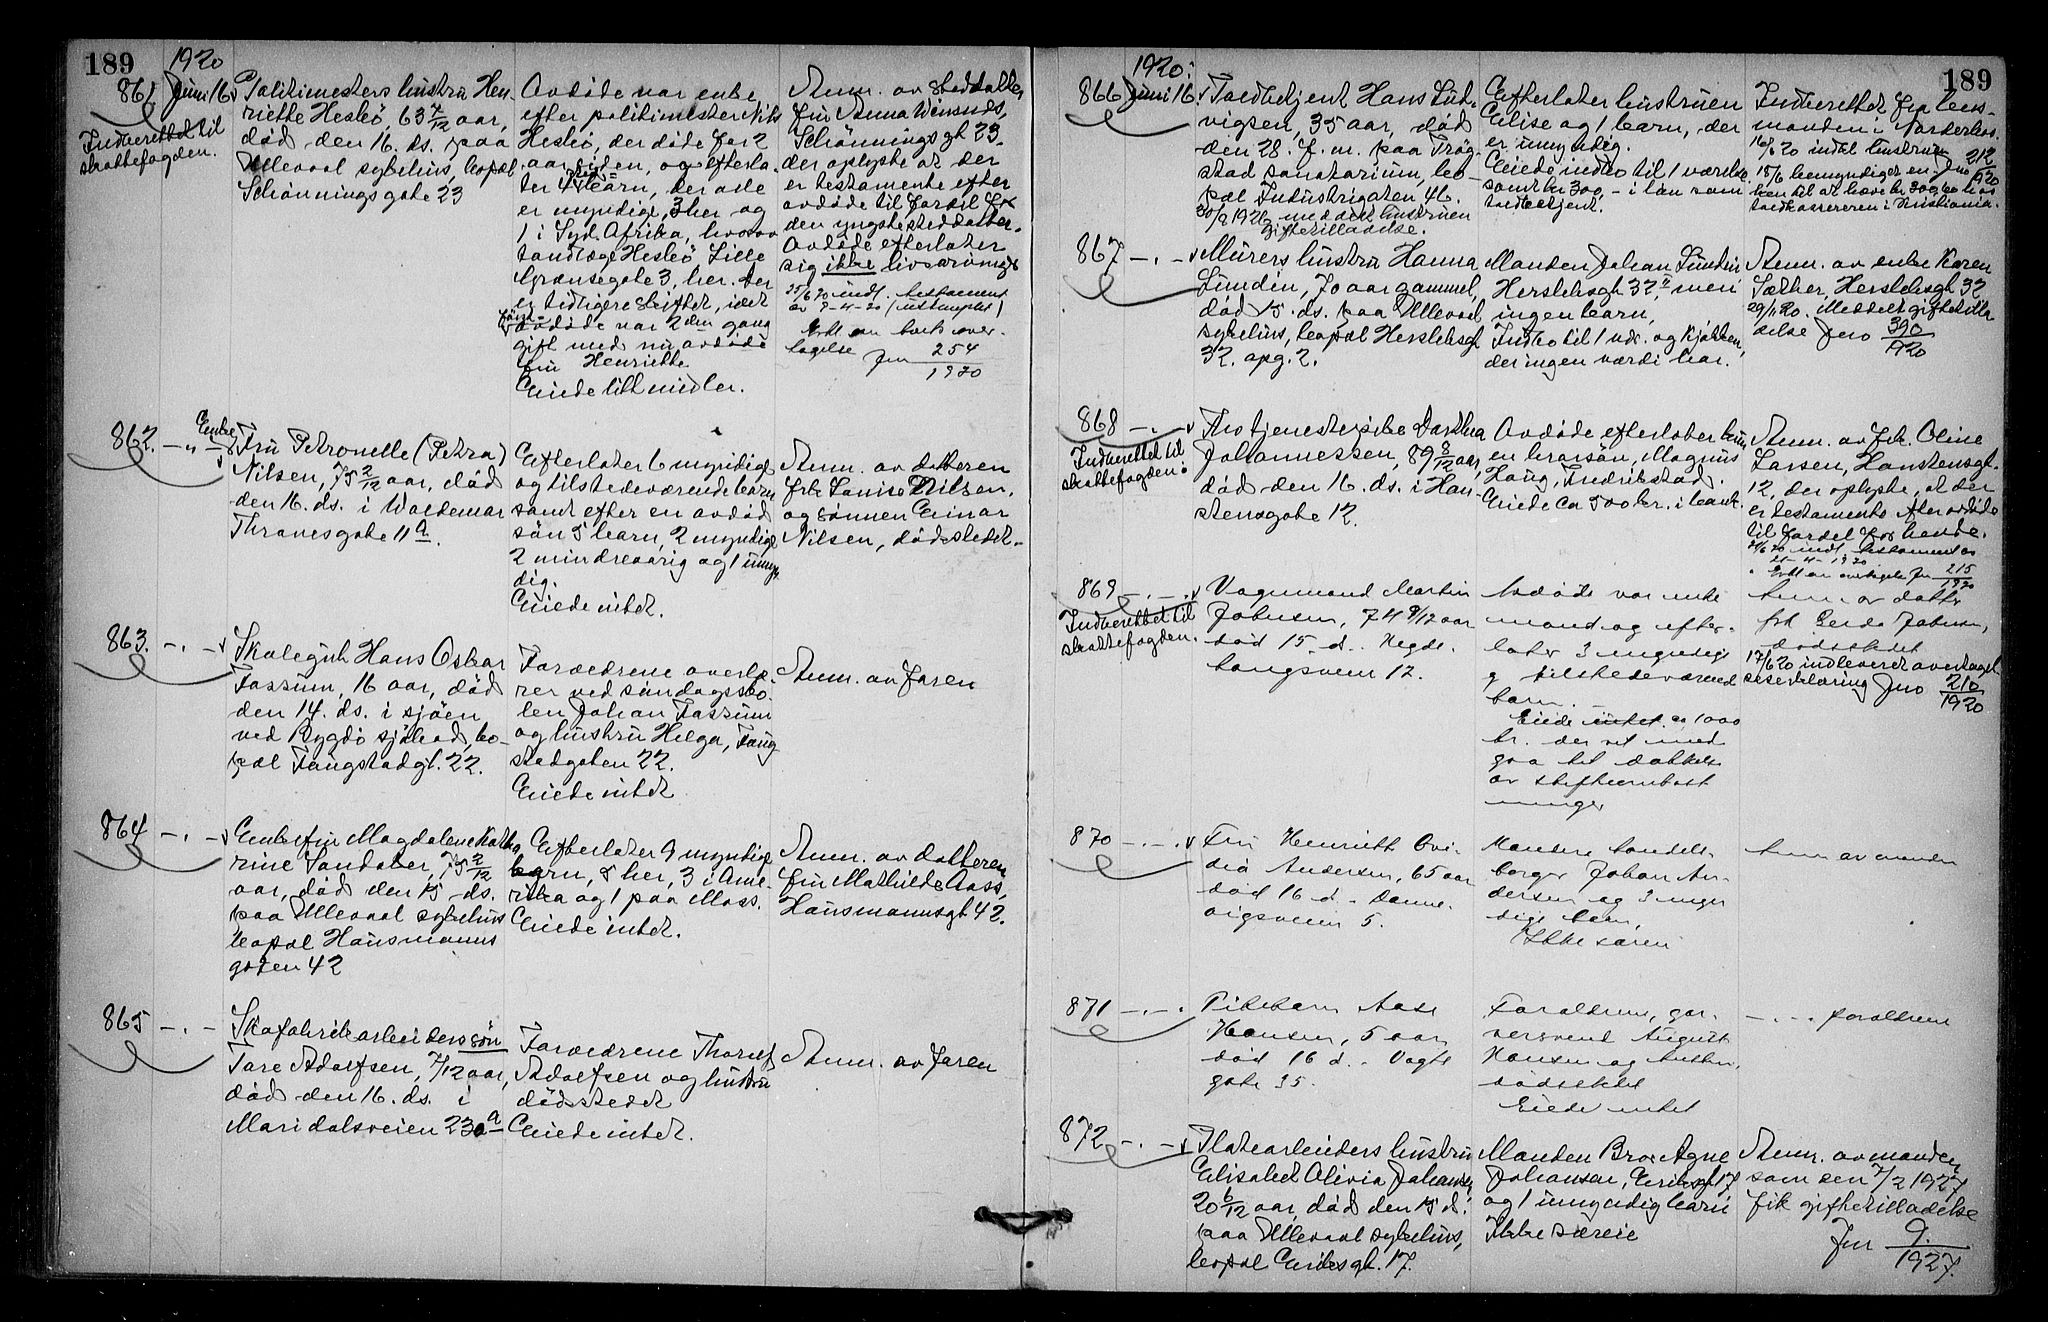 189
1920
861 Juni 16
Indberettet til
skattefogden.
Politimesters hustru Hen-
riette Heslö, 63 4/12 aar,
död den 16. ds. paa
Ullevaal sykehus, bopæl
Schönningsgate 23
Avdöde var enke
efter politimester Nils
Heslö, der döde for 2
aar siden, og efterla-
ter 4 barn, der alle
er myndige, 3 her og
1 i Syd Afrika, hvorav
tandlæge Heslö Lille
Grænsegate 3, her. Der
er tidligere skiftet, idet
avdöde var 2den gang
gift med nu avdöde
fru Henriette
Eiede litt midler.
Anm. av steddatter
fru Anna
Schönningsgt 23
der oplyste at der
er testamente efter
avdöde til fordel for
den yngste steddatter.
Avdöde efterlater
sig ikke livsarvinger
25/6 20 indl. testament
av 9-4-20
Erkl. om bork over-
tagelse Jnr 254
1920
862. - " -
Enke
Fru Petronelle (Petra)
Nilsen, 75 2/12 aar, död
den 16. ds. i Waldemar
Thranesgate 11 a.
Efterlater 6 myndige
og tilstedeværende barn
samt efter en avdöd
sön 5 barn, 2 myndige
2 mindreaarig og 1 umyn-
dig.
Eiede intet.
Anm. av datteren
frk Louise Nilsen,
og sönnen Einar
Nilsen, dödsstedet.
863. - . -
Skolegut Hans Oskar
Fossum, 16 aar, död
den 14. ds. i sjöen
ved Bygdö sjöbad, bo-
pæl Fougstadgt. 22.
Forældrene overle-
rer ved söndagssko-
len Johan Fossum
og hustru Helga, Foug-
stadgaten 22.
Eiede intet
Anm. av faren
864 - . -
Enkefru Magdalene Katha-
rine Sandaker, 75 2/12
aar, död den 15 ds.
paa Ullevaal sykehus
bopæl Hausmanns
gaten 42
Efterlater 9 myndige
barn, 5 her, 3 i Ame-
rika og 1 paa Moss.
Eiede intet.
Anm. av datteren
fru Mathilde Aass,
Hausmannsgt 42.
865 - . -
Skofabrikarbeiders sön
Tore Adolfsen, 7/12 aar,
död den 16. ds. i
Maridalsveien 230 a
Forældrene Thorulf
Adolfsen og hustru
dödsstedet
Eiede intet.
Anm. av faren
189
1920.
866 Juni 16
Toldbetjent Hans Lud-
vigsen, 35 aar, död
den 28. f. m. paa Trög-
stad sanatorium, bo-
pæl Industrigaten 46.
20/9 1921 meddelt hustruen
giftetilladelse.
Efterlater hustruen
Elise og 1 barn, der
er umyndig.
Eiede indbo til 1 værelse
samt kr 300,- i løn som
toldbetjent.
Indberettet fra lens-
manden i
16/6 20 indkl hustruen
18/6 bemyndiget en- Jnr 212
1920
ken til at hæve kr 300,00 hos
toldkassereren i Kristiania.
867 - . -
Murers hustru Hanna
Lundin, 70 aar gammel,
död 15. ds. paa Ullevaal
sykehus, bopæl Herslebsgt
32. opg. 2.
Manden Johan Lundin
Herslebsgt 32 2, men
ingen barn,
Indbo til 1 vær. og kjökken,
der ingen værdi har.
Anm. av enke Karen
Sæther, Herslebsgt 32
29/11 20. Meddelt giftetilla
delse Jnr 390
1920
868 - . -
Indberettet til
skattefogden.
Fhv tjenestepike Dorthea
Johannessen, 89 8/12 aar,
död den 16. ds. i Han-
steensgate 12.
Avdöde efterlater kun
en brorsön, Magnus
Haug, Fredrikstad.
Eiede ca 500 kr. i bank.
Anm. av frk. Oline
Larsen, Hansteensgt.
12, der oplyste, at der
er testamente efter avdöde
til fordel for hende.
21/6 20 indl. testament av
21-4-1920
Erkl. om overtagelse Jnr 215
1920
869 - . -
Indberettet til
skattefogden.
Vognmand Martin
Johnsen, 74 9/12 aar
död 15. d. Hegde-
haugsveien 12.
Avdöde var enke
mand og efter-
later 3 myndige
og tilstedeværende
barn.
Eiede intet ca 1000
kr. der vil med
gaa til dækkelse
av
Anm. av datter
frk Gerda Johnsen,
dödsstedet
17/6 20 indleveret overtagel
seserklæring Jnr 210
1920
870 - . -
Fru Henriette Ovi-
dia Andersen, 65 aar
död 16 d. Danne-
vigsveien 5.
Manden handels-
borger Johan An-
dersen og 3 myn-
dige barn,
Ikke særeie
Anm av manden
871 - . -
Pikebarn Aase
Hansen, 5 aar
död 16 d. Vogts
gate 35.
Forældrene, gar-
versvend August
Hansen og hustru,
dödsstedet
Eiede intet
- . - forældrene
872 - . -
Platearbeiders hustru
Elisabet Olivia Johansen,
20 6/12 aar, död den 15 d.
paa Ullevaal sykehus,
bopæl Eiriksgt. 17.
Manden Bror Agne
Johansen, Eiriksgt 17
og 1 umyndig barn
Ikke særeie
Anm. av manden
som den 7/2 1927
fik giftetilladelse
Jnr 9.
1927.